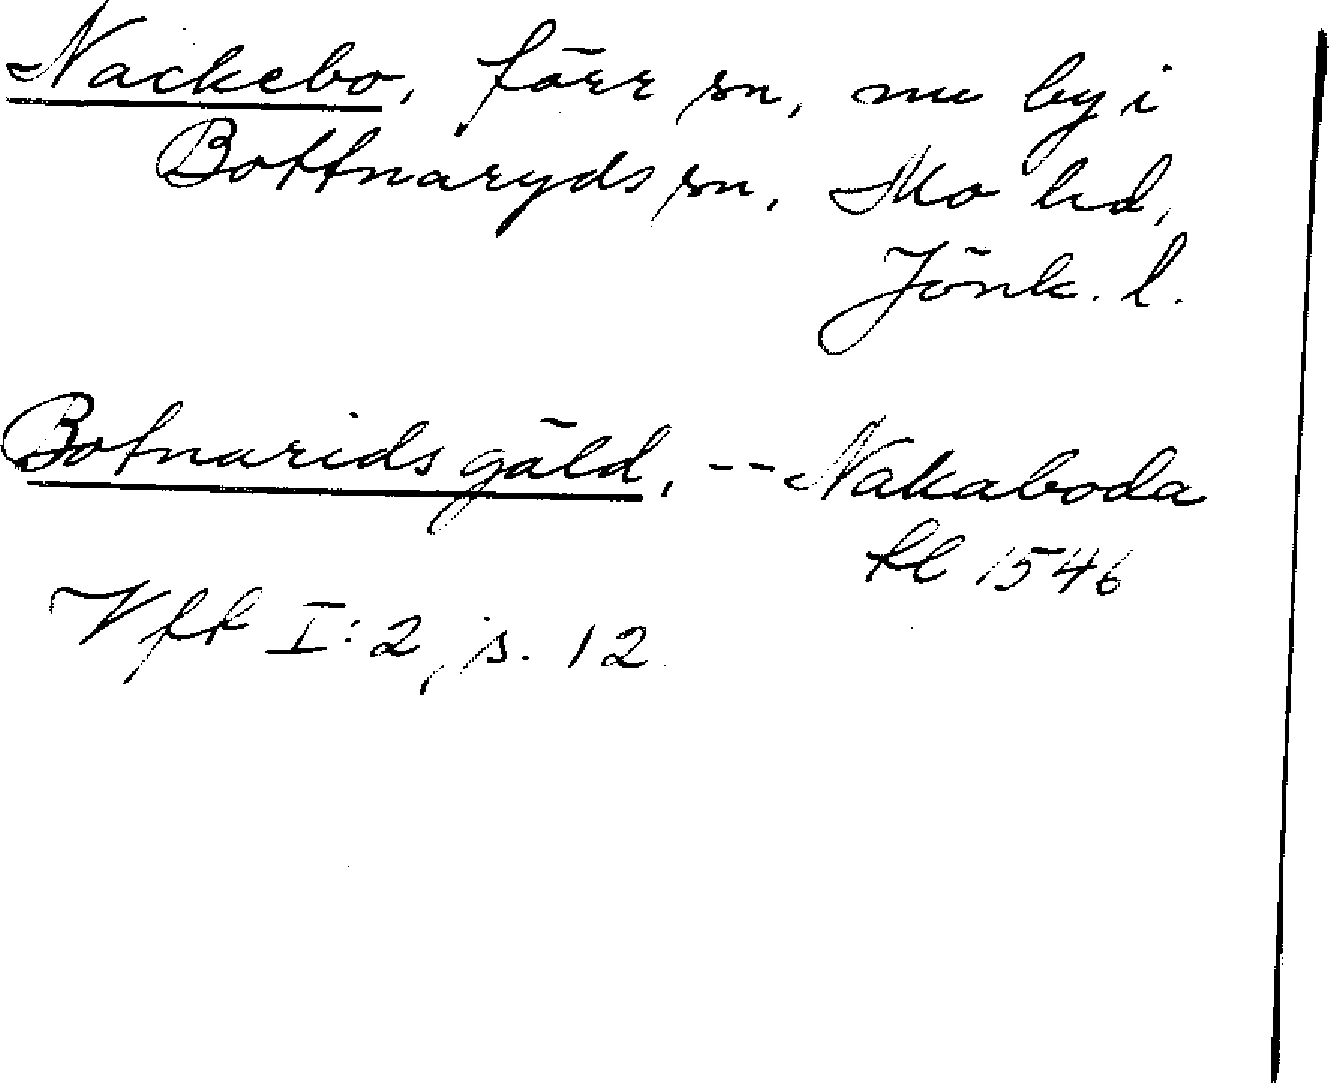 Nackebo, förr sn, nu by i
Bottnaryds sn, Mo hd,
Jönk. l.
Botnarids gäld, -- Nakaboda
1546
Vft I:2, s. 12